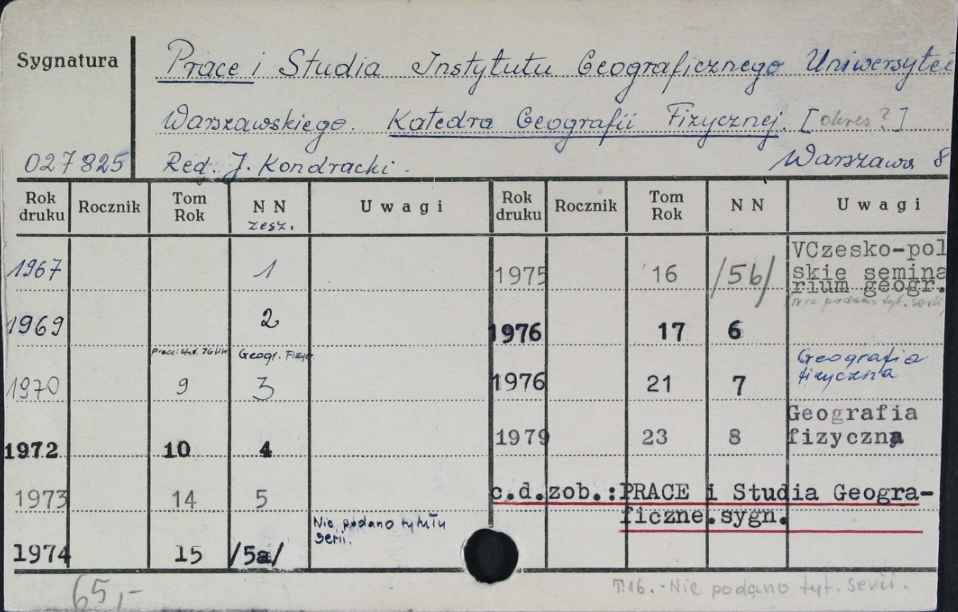 Sygnatura
Prace i Studia Instytutu Geograficznego Uniwersytet
Warszawskiego. Katedra Geografii Fizycznej. [okres?]
027825 Red. J. Kondracki. Warszawa 8
Rok druku Rocznik Tom Rok N N zesz. Uwagi Rok druku Rocznik Tom Rok N N Uwagi
1967 1
1969 2
Geogr. Fizycz
1970 9 3
1972 10 4
1973 14 5
Nie podano tytułu
serii.
1974 15 /5a/
1975 16 /5b/ VCzesko-pol
skie semina
rium geogr.
Nie podano tyt. serii
1976 17 6
1976 21 7 Geografia
fizyczna
1979 23 8 Geografia
fizyczna
c.d.zob.:PRACE i Studia Geogra-
ficzne.sygn.
65,-
T.16.-Nie podano tyt. serii.